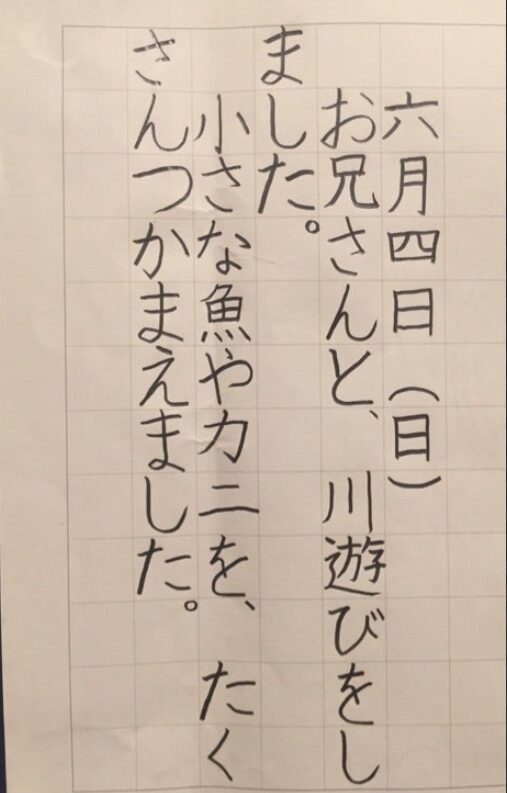 六月四日（日）
お兄さんと、川遊びをし
ました。
小さな魚やカニを、たく
さんつかまえました。